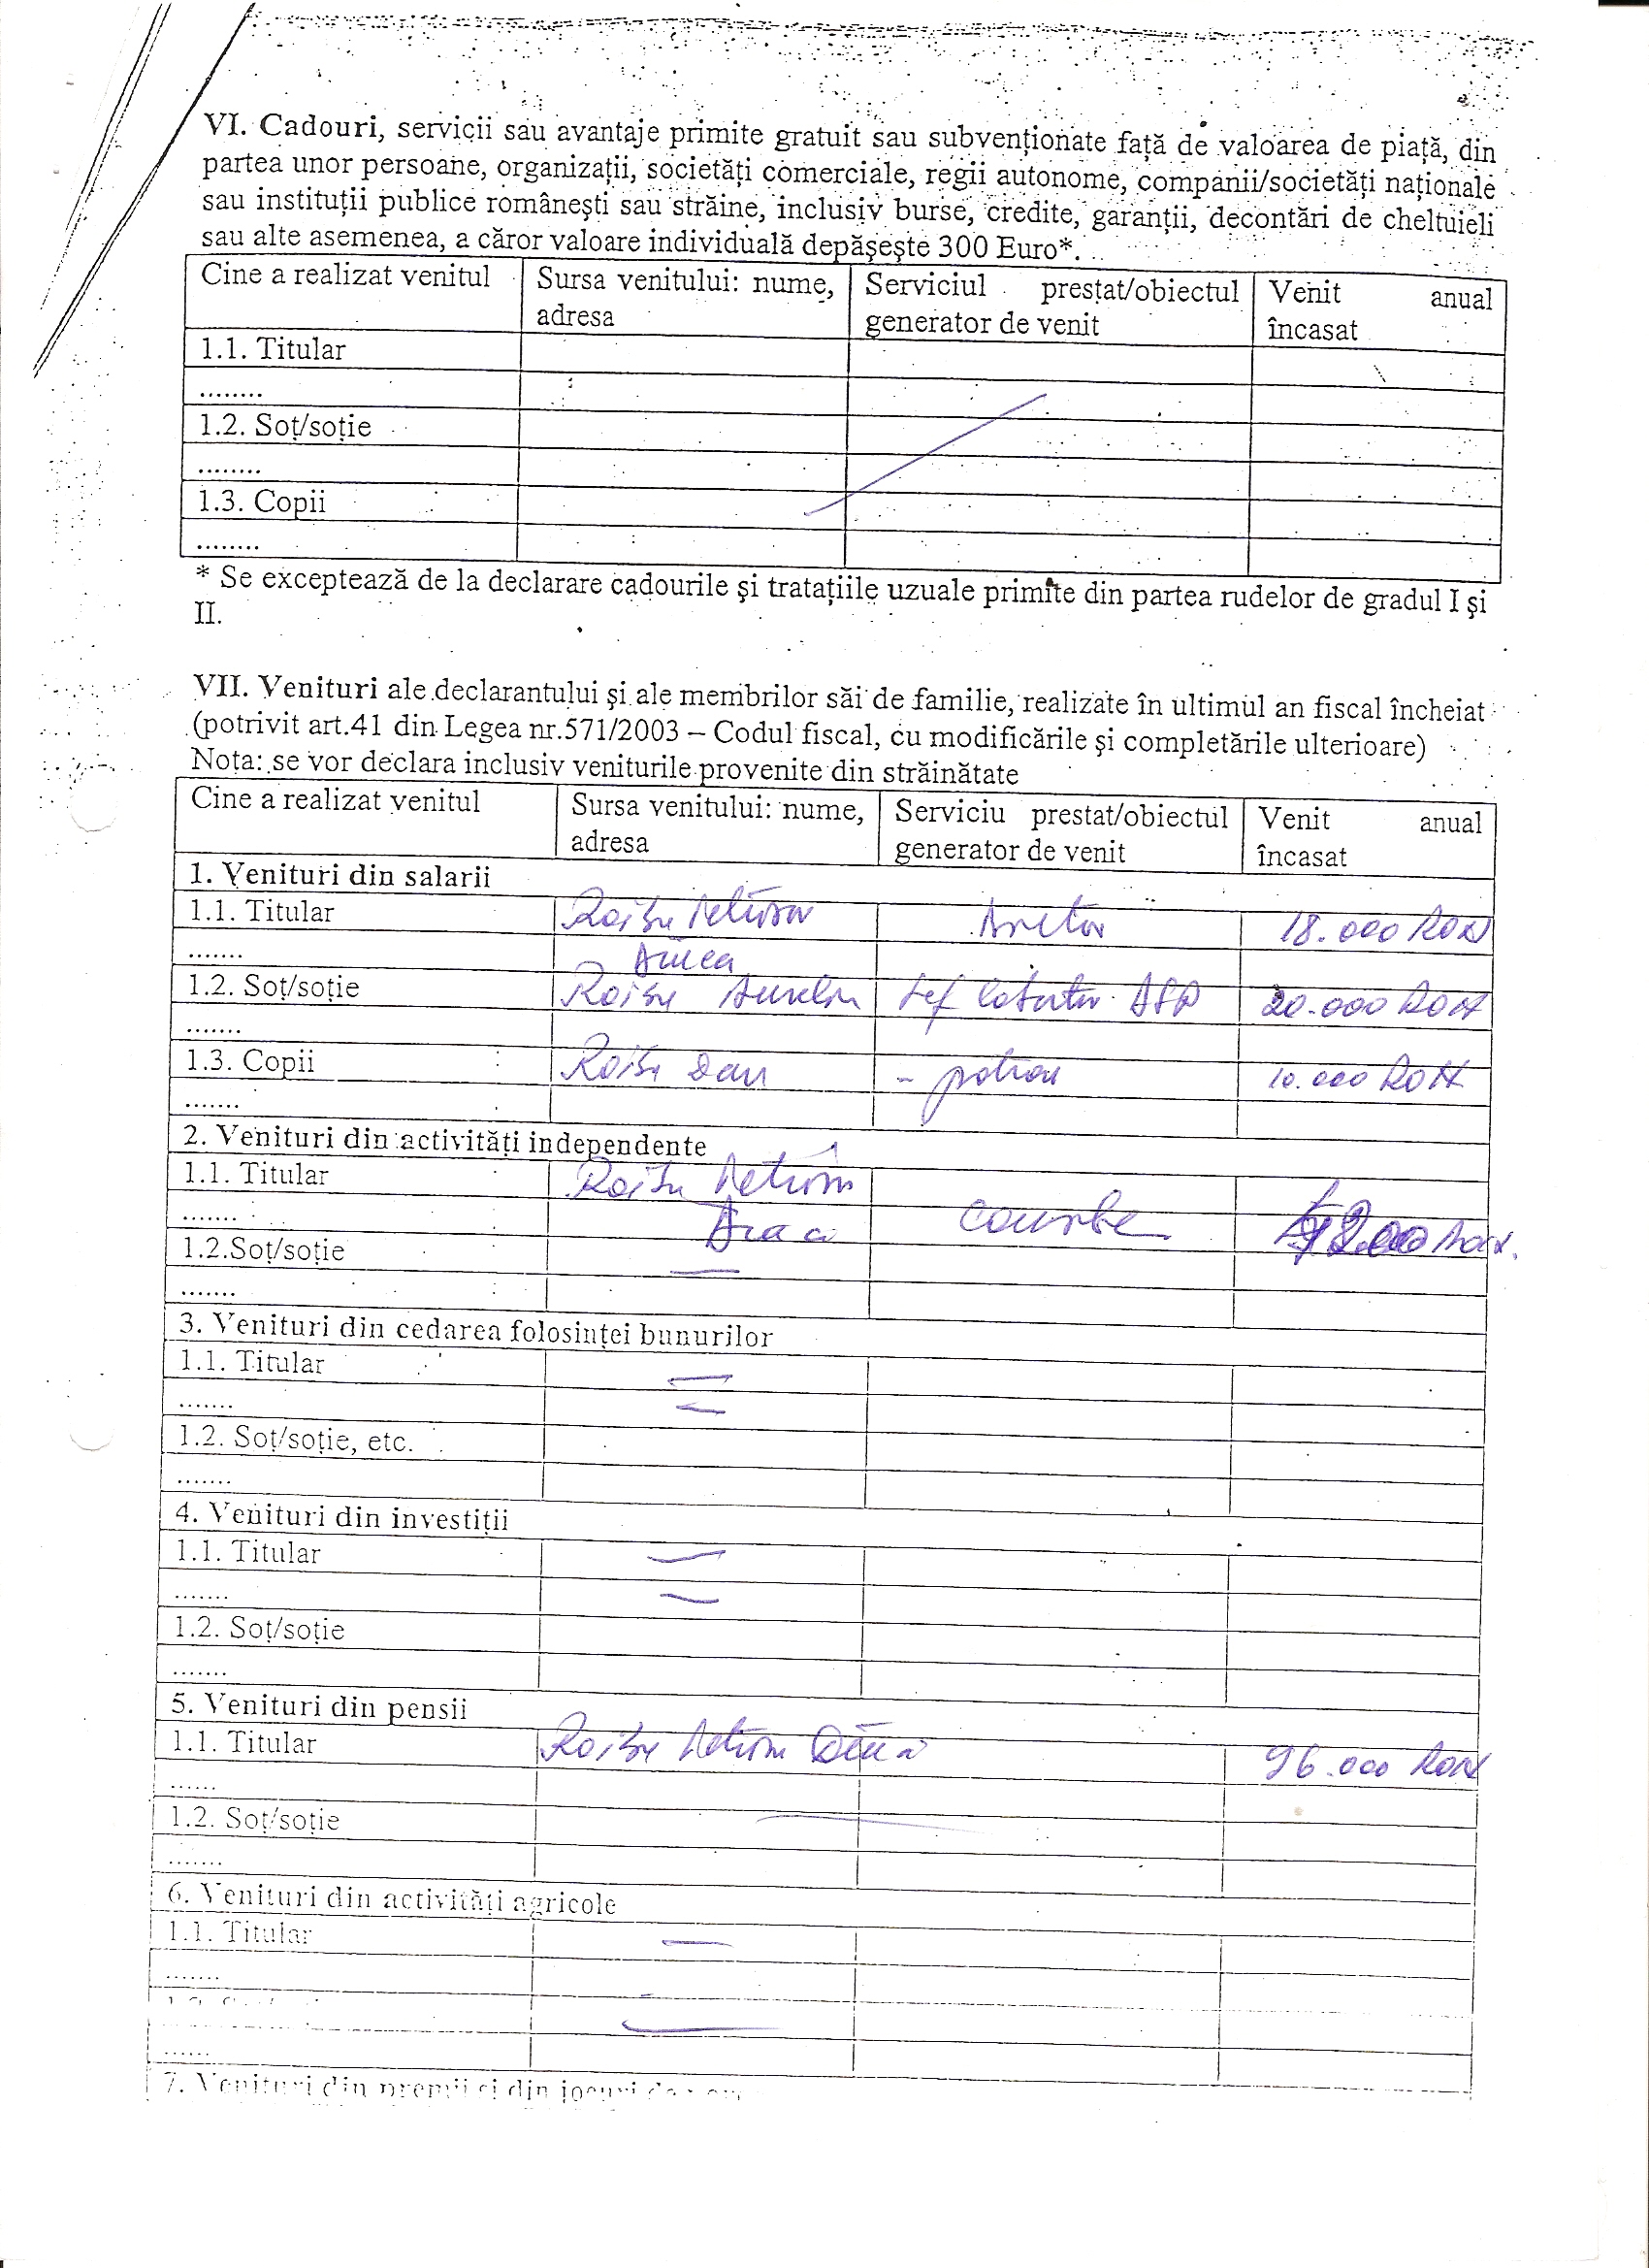 VI. Cadouri, servicii sau avantaje primite gratuit sau subvenţionate faţă de valoarea de piaţă, din
partea unor persoane, organizaţii, societăţi comerciale, regii autonome, companii/societăţi naţionale
sau instituţii publice româneşti sau străine, inclusiv burse, credite, garanţii, decontări de cheltuieli
sau alte asemenea, a căror valoare individuală depăşeşte 300 Euro*.
Cine a realizat venitul Sursa venitului: nume, adresa Serviciul prestat/obiectul generator de venit Venit anual încasat
1.1. Titular
........
1.2. Soţ/soţie
........
1.3. Copii
........
* Se exceptează de la declarare cadourile şi trataţiile uzuale primite din partea rudelor de gradul I şi
II.
VII. Venituri ale declarantului şi ale membrilor săi de familie, realizate în ultimul an fiscal încheiat
(potrivit art.41 din Legea nr.571/2003 – Codul fiscal, cu modificările şi completările ulterioare)
Nota: se vor declara inclusiv veniturile provenite din străinătate
Cine a realizat venitul Sursa venitului: nume, adresa Serviciu prestat/obiectul generator de venit Venit anual încasat
1. Venituri din salarii
1.1. Titular Roibu 18.000 RON
.......
1.2. Soţ/soţie Roibu 20.000 RON
.......
1.3. Copii Roibu Dan - patron 10.000 RON
.......
2. Venituri din activităţi independente
1.1. Titular Roibu
.......
1.2.Soţ/soţie —
.......
3. Venituri din cedarea folosinţei bunurilor
1.1. Titular —
....... —
1.2. Soţ/soţie, etc.
.......
4. Venituri din investiţii
1.1. Titular —
....... —
1.2. Soţ/soţie
.......
5. Venituri din pensii
1.1. Titular Roibu 96.000 RON
......
1.2. Soţ/soţie —
.......
6. Venituri din activităţi agricole
1.1. Titular —
.......
......
7. Venituri din premii şi din jocuri